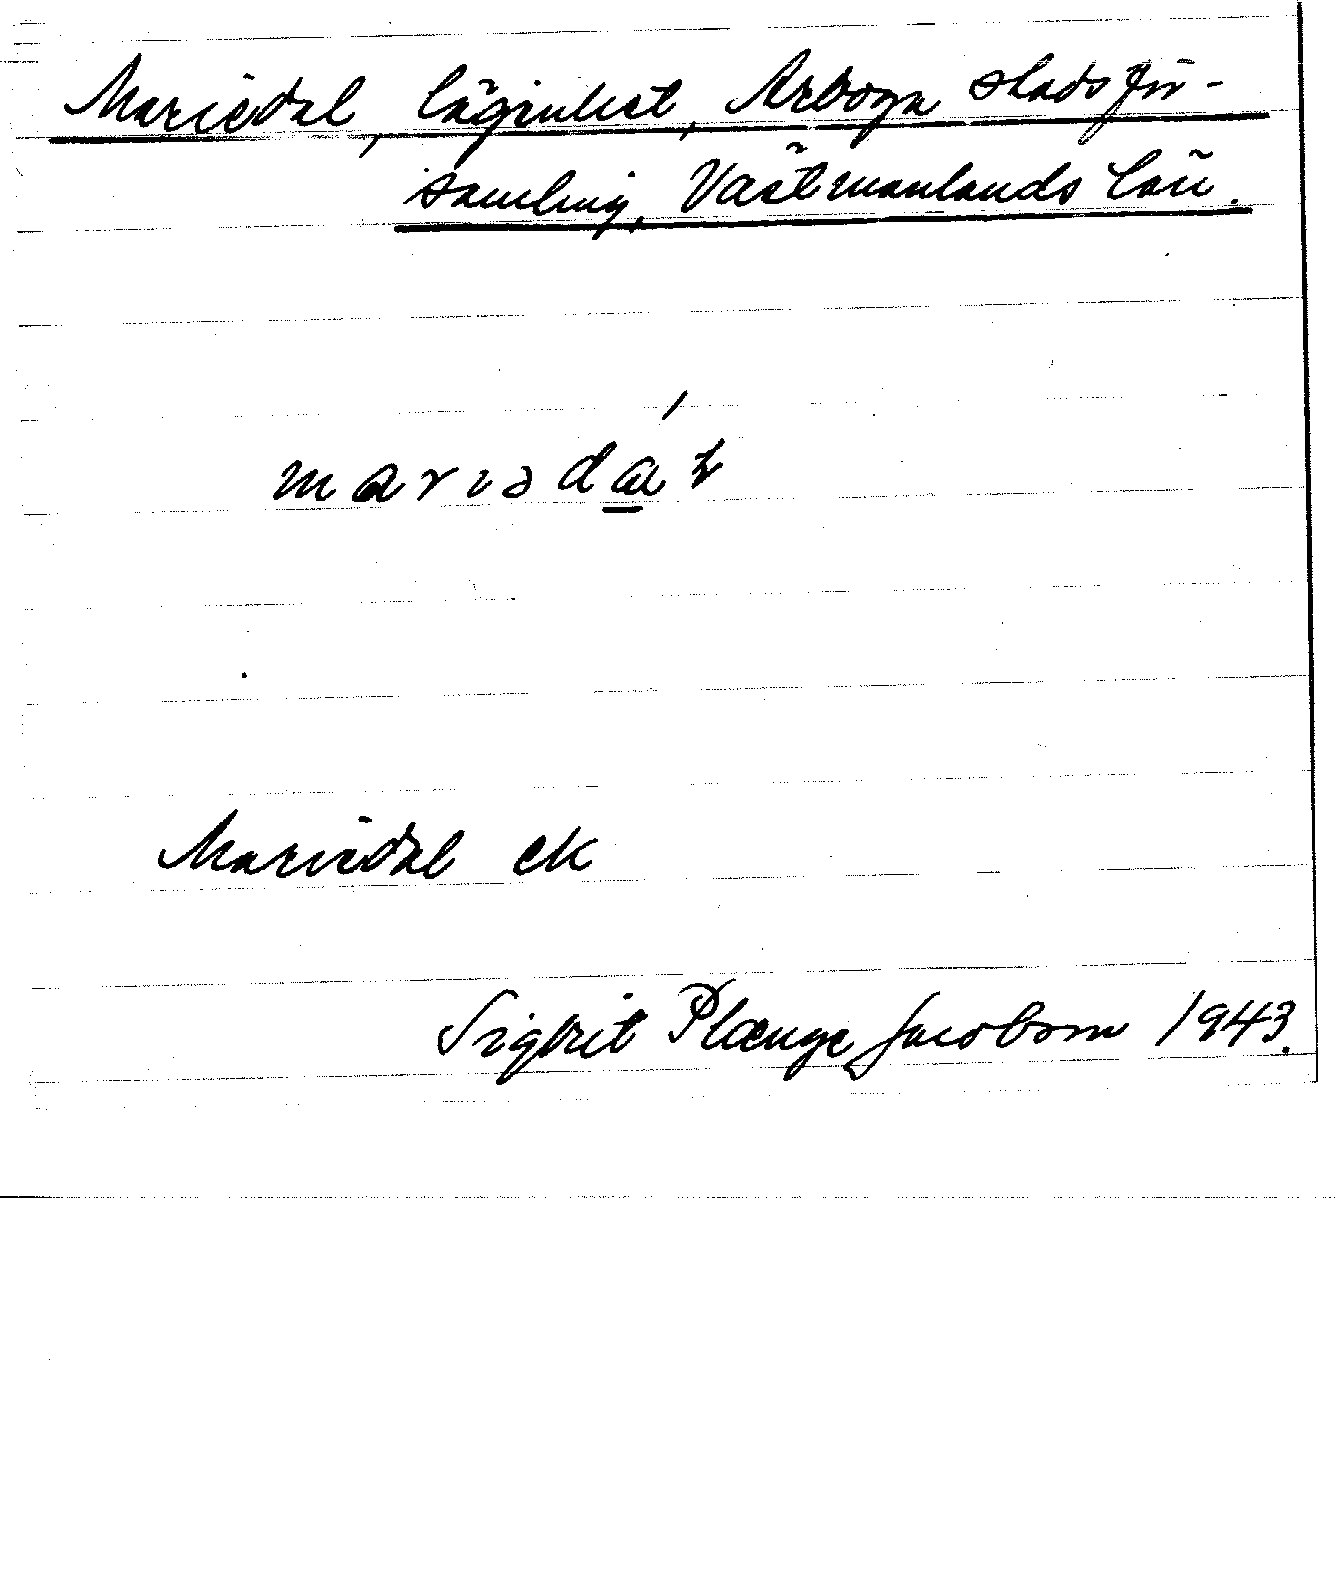 Mariedal, lägenhet, Arboga stadsför-
samling, Västmanlands län.
Mariedal EK
Sigbrit Plænge Jacobson 1943.